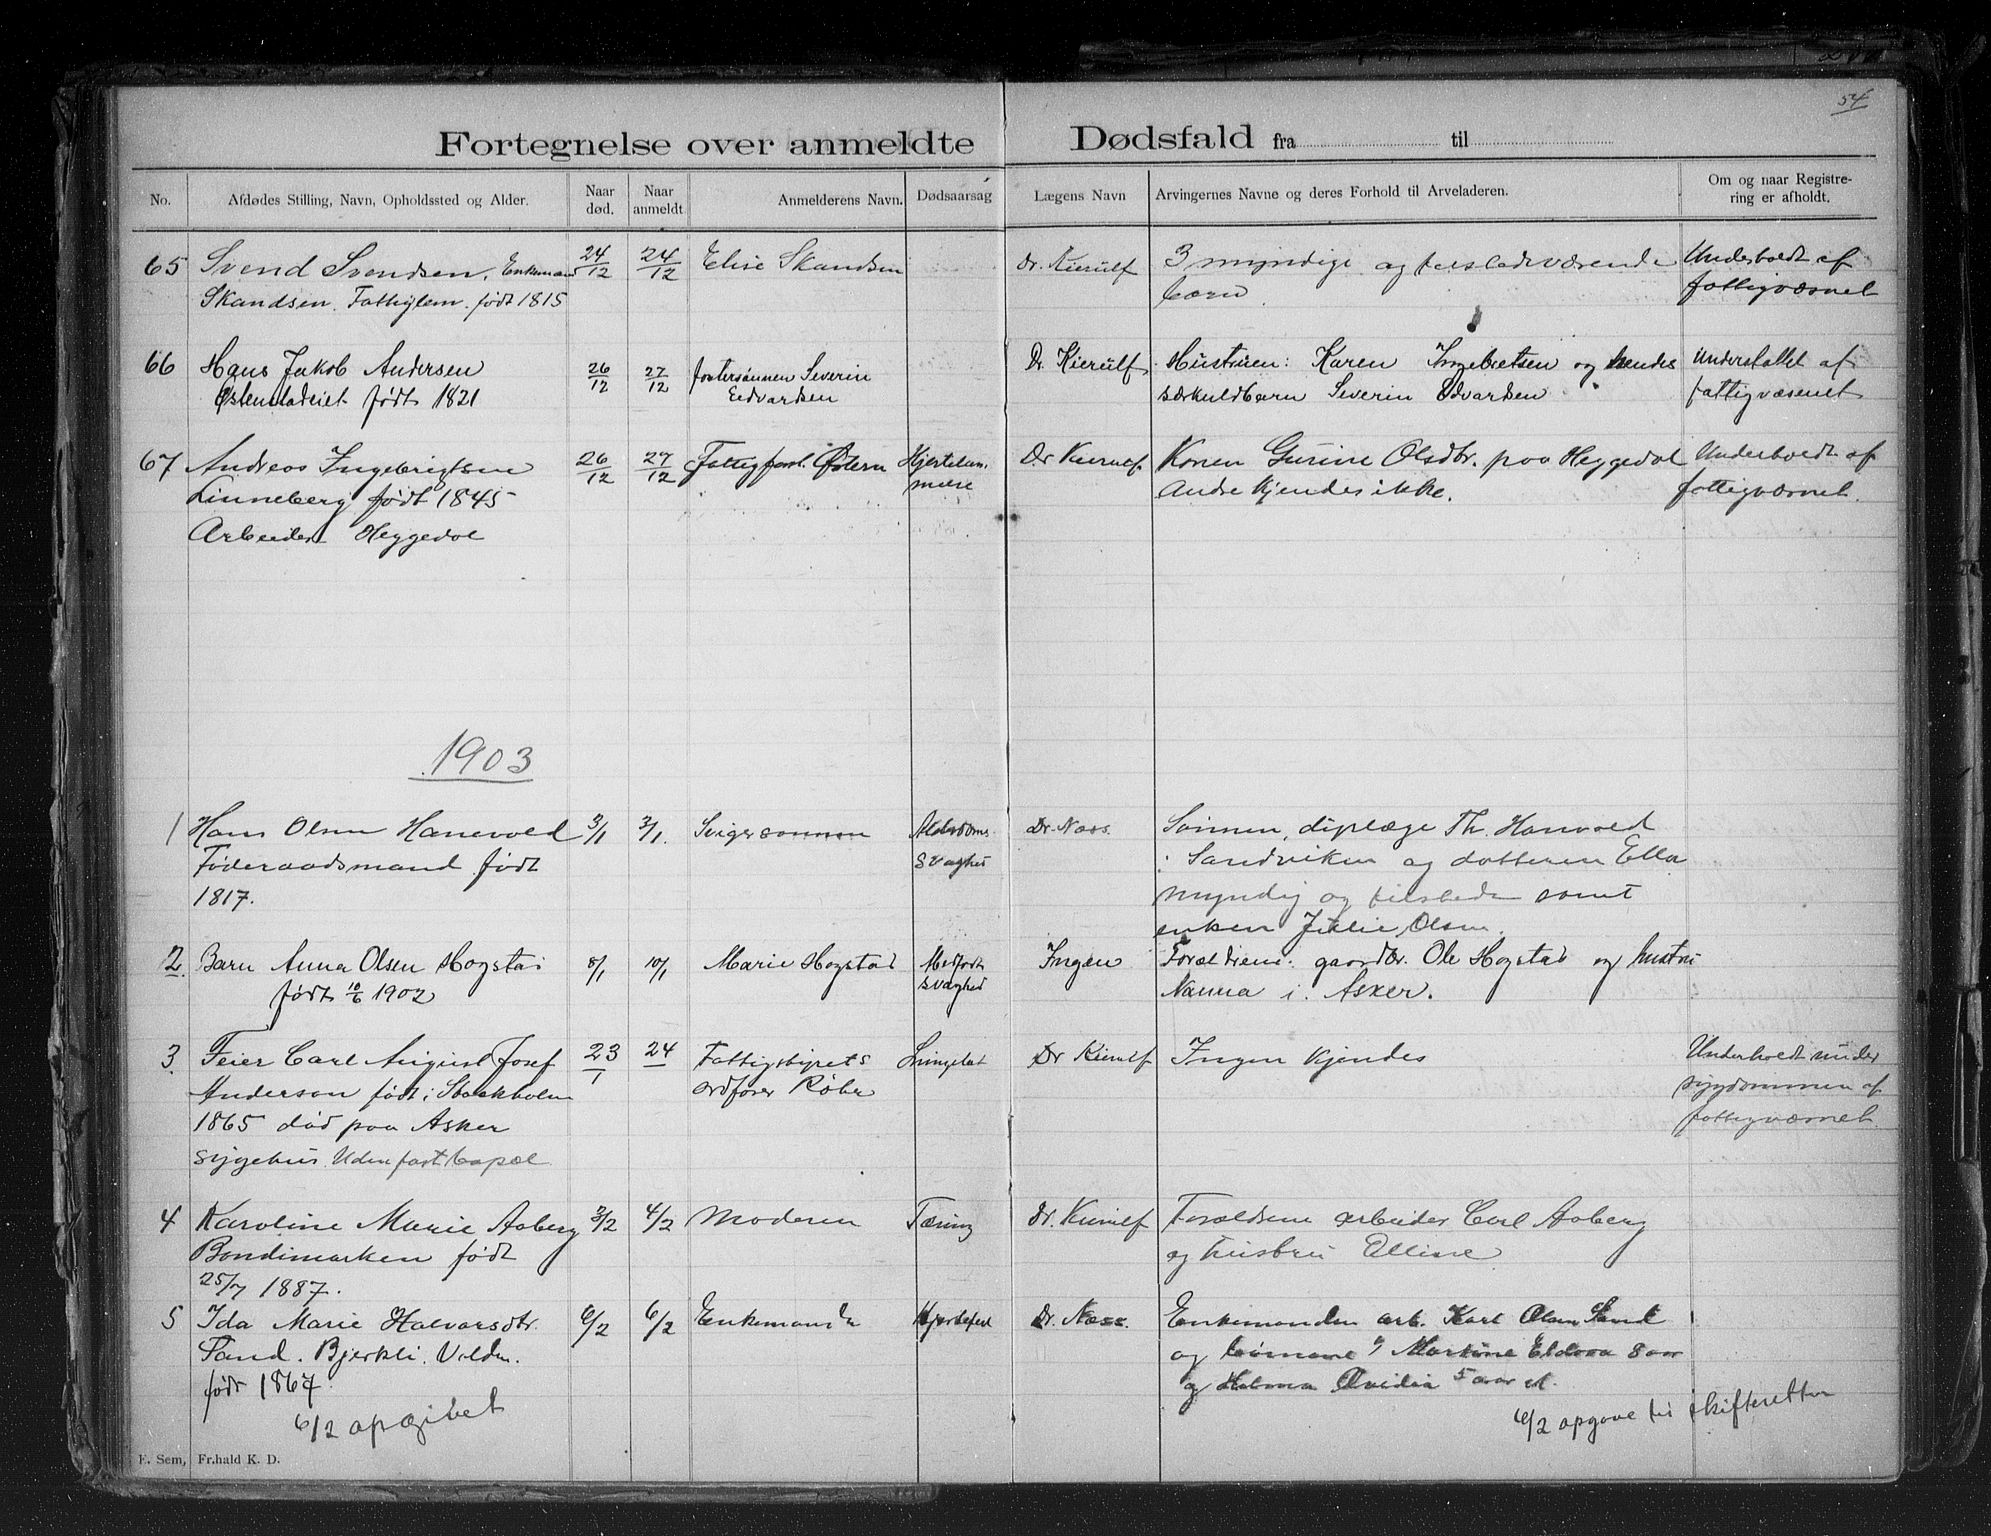 54
Fortegnelse over anmeldte Dødsfald fra til
No. Afdødes Stilling, Navn, Opholdssted og Alder. Naar død. Naar anmeldt Anmelderens Navn. Dødsaarsag Lægens Navn Arvingernes Navne og deres Forhold til Arveladeren. Om og naar Registrering er afholdt.
65 Svend Svendsen, Enkemand 24/12 24/12 Elise Skandsen Dr. Kierulf 3 myndige og tilstedeværende Underholdt af
Skandsen. Fattiglem. født 1815 børn. fattigvæsnet
66 Hans Jakob Andersen 26/12 27/12 fostersønnen Severin Dr. Kierulf Hustruen: Karen Ingebretsen og hendes Understøttet af
Østenstadeiet født 1821 Edvardsen særkuldbarn Severin Edvardsen fattigvæsenet
67 Andreas Ingebrigtsen 26/12 27/12 Fattigforst. Østern Hjertelam- Dr Kierulf Konen Gurine Olsdtr. paa Heggedal Underholdt af
Linneberg født 1845 melse Andre kjendes ikke. fattigvæsnet.
Arbeider Heggedal
1903
1 Hans Olsen Hanevold 3/1 3/1. Svigersønnen Alderdoms- Dr. Næss. Sønnen, diplæge Th. Hanvold
Føderaadsmand født svaghed i Sandviken og datteren Ella
1817. myndig og tilstede samt
enken Julie Olsen.
2. Barn Anna Olsen Hogstad 8/1 10/1 Marie Hogstad Medfødt Ingen Forældrene: gaardbr. Ole Hogstad og hustru
født 10/6 1902 svaghed Nanna i Asker.
3. Feier Carl August Josef 23/1 24 Fattigstyrets Dr Kierulf Ingen kjendes Underholdt under
Anderson født i Stockholm ordfører Røhr sygdommen af
1865 død paa Asker fattigvæsnet.
sygehus. Uden fast bopæl
4 Karoline Marie Aaberg 3/2 4/2 Moderen Tæring Dr. Kierulf Forældrene arbeider Carl Aaberg
Bondimarken født og hustru Elline
25/7 1887.
5 Ida Marie Halvorsdtr. 6/2 6/2 Enkemanden Hjertefeil Dr. Næss. Enkemanden arb. Karl Olsen Sand
Sand. Bjerkli. Valden. og børnene Martine Eldora 8 aar
født 1867. og Halma Ovidia 5 aar
6/2 opgivet 6/2 opgave til skifteretten
E. Sem, Fr.hald K. D.